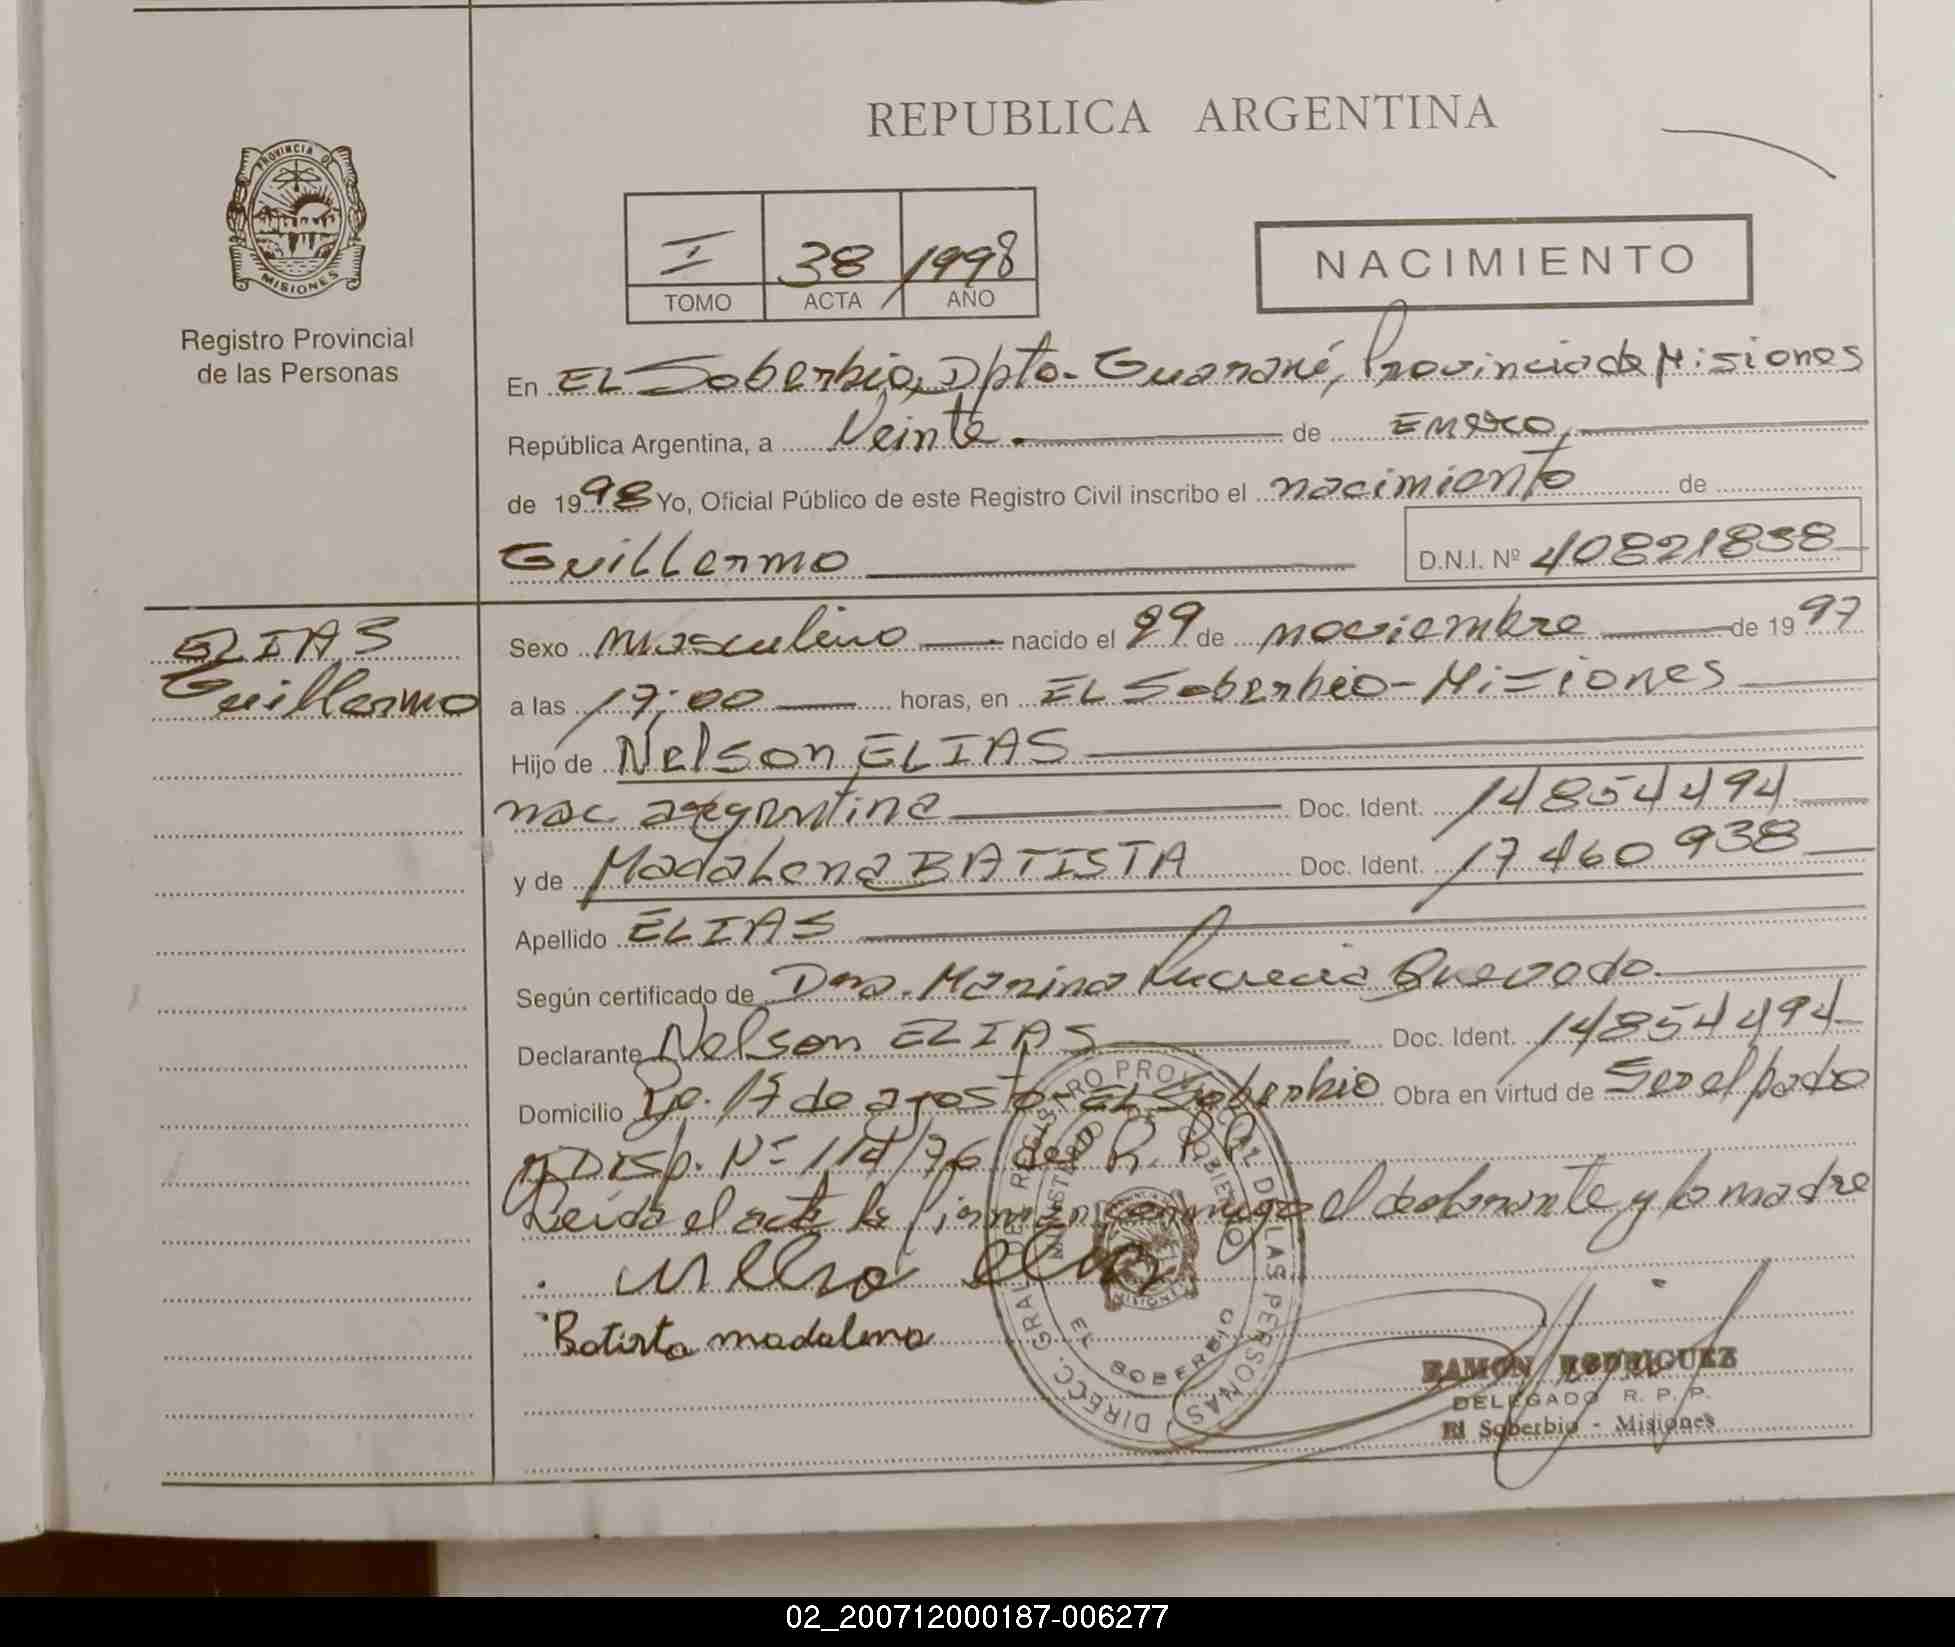 REPUBLICA ARGENTINA
PROVINCIA DE
MISIONES
Registro Provincial
de las Personas
I 38 1998
TOMO ACTA AÑO
NACIMIENTO
En EL Soberbio, Dpto. Guaraní, Provincia de Misiones
República Argentina, a Veinte. de Enero,
de 1998 Yo, Oficial Público de este Registro Civil inscribo el nacimiento de
Guillermo D.N.I. Nº 40821838
ELIAS
Guillermo
Sexo masculino nacido el 29 de noviembre de 1997
a las 17:00 horas, en EL Soberbio - Misiones
Hijo de Nelson ELIAS
nac argentina Doc. Ident. 14854494
y de Madalena BATISTA Doc. Ident. 17460938
Apellido ELIAS
Según certificado de Dra. Marina Lucrecia Quevedo.
Declarante Nelson ELIAS Doc. Ident. 14854494
Domicilio 17 de agosto - EL Soberbio Obra en virtud de Ser el padre
Disp. Nº 114/76 del R. P. P.
Leída el acta la firman conmigo el declarante y la madre
Batista madalena
DIRECC. GRAL. DEL REGISTRO PROVINCIAL DE LAS PERSONAS
MINISTERIO DE GOBIERNO
MISIONES
EL SOBERBIO
RAMON RODRIGUEZ
DELEGADO R. P. P.
El Soberbio - Misiones
02_200712000187-006277